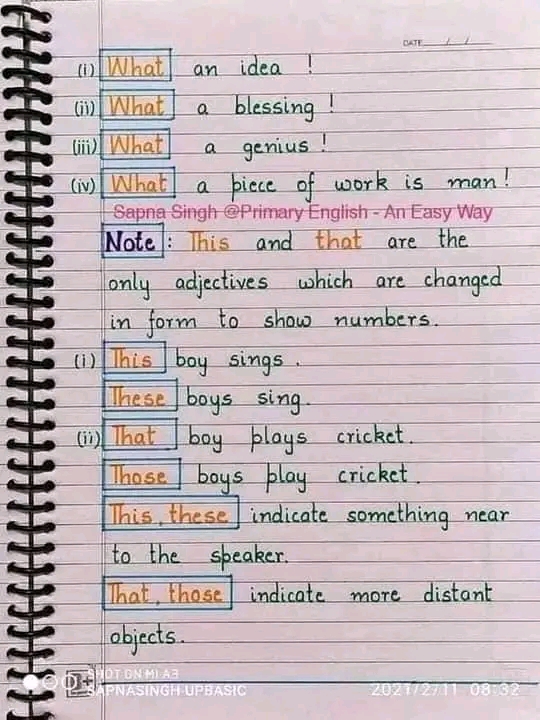 DATE / /
(i) What an idea !
(ii) What a blessing !
(iii) What a genius !
(iv) What a piece of work is man !
Sapna Singh @Primary English - An Easy Way
Note : This and that are the
only adjectives which are changed
in form to show numbers.
(i) This boy sings .
These boys sing.
(ii) That boy plays cricket.
Those boys play cricket.
This, these indicate something near
to the speaker.
That, those indicate more distant
objects.
SHOT ON MI A3
SAPNASINGH UPBASIC
2021/2/11 08:32